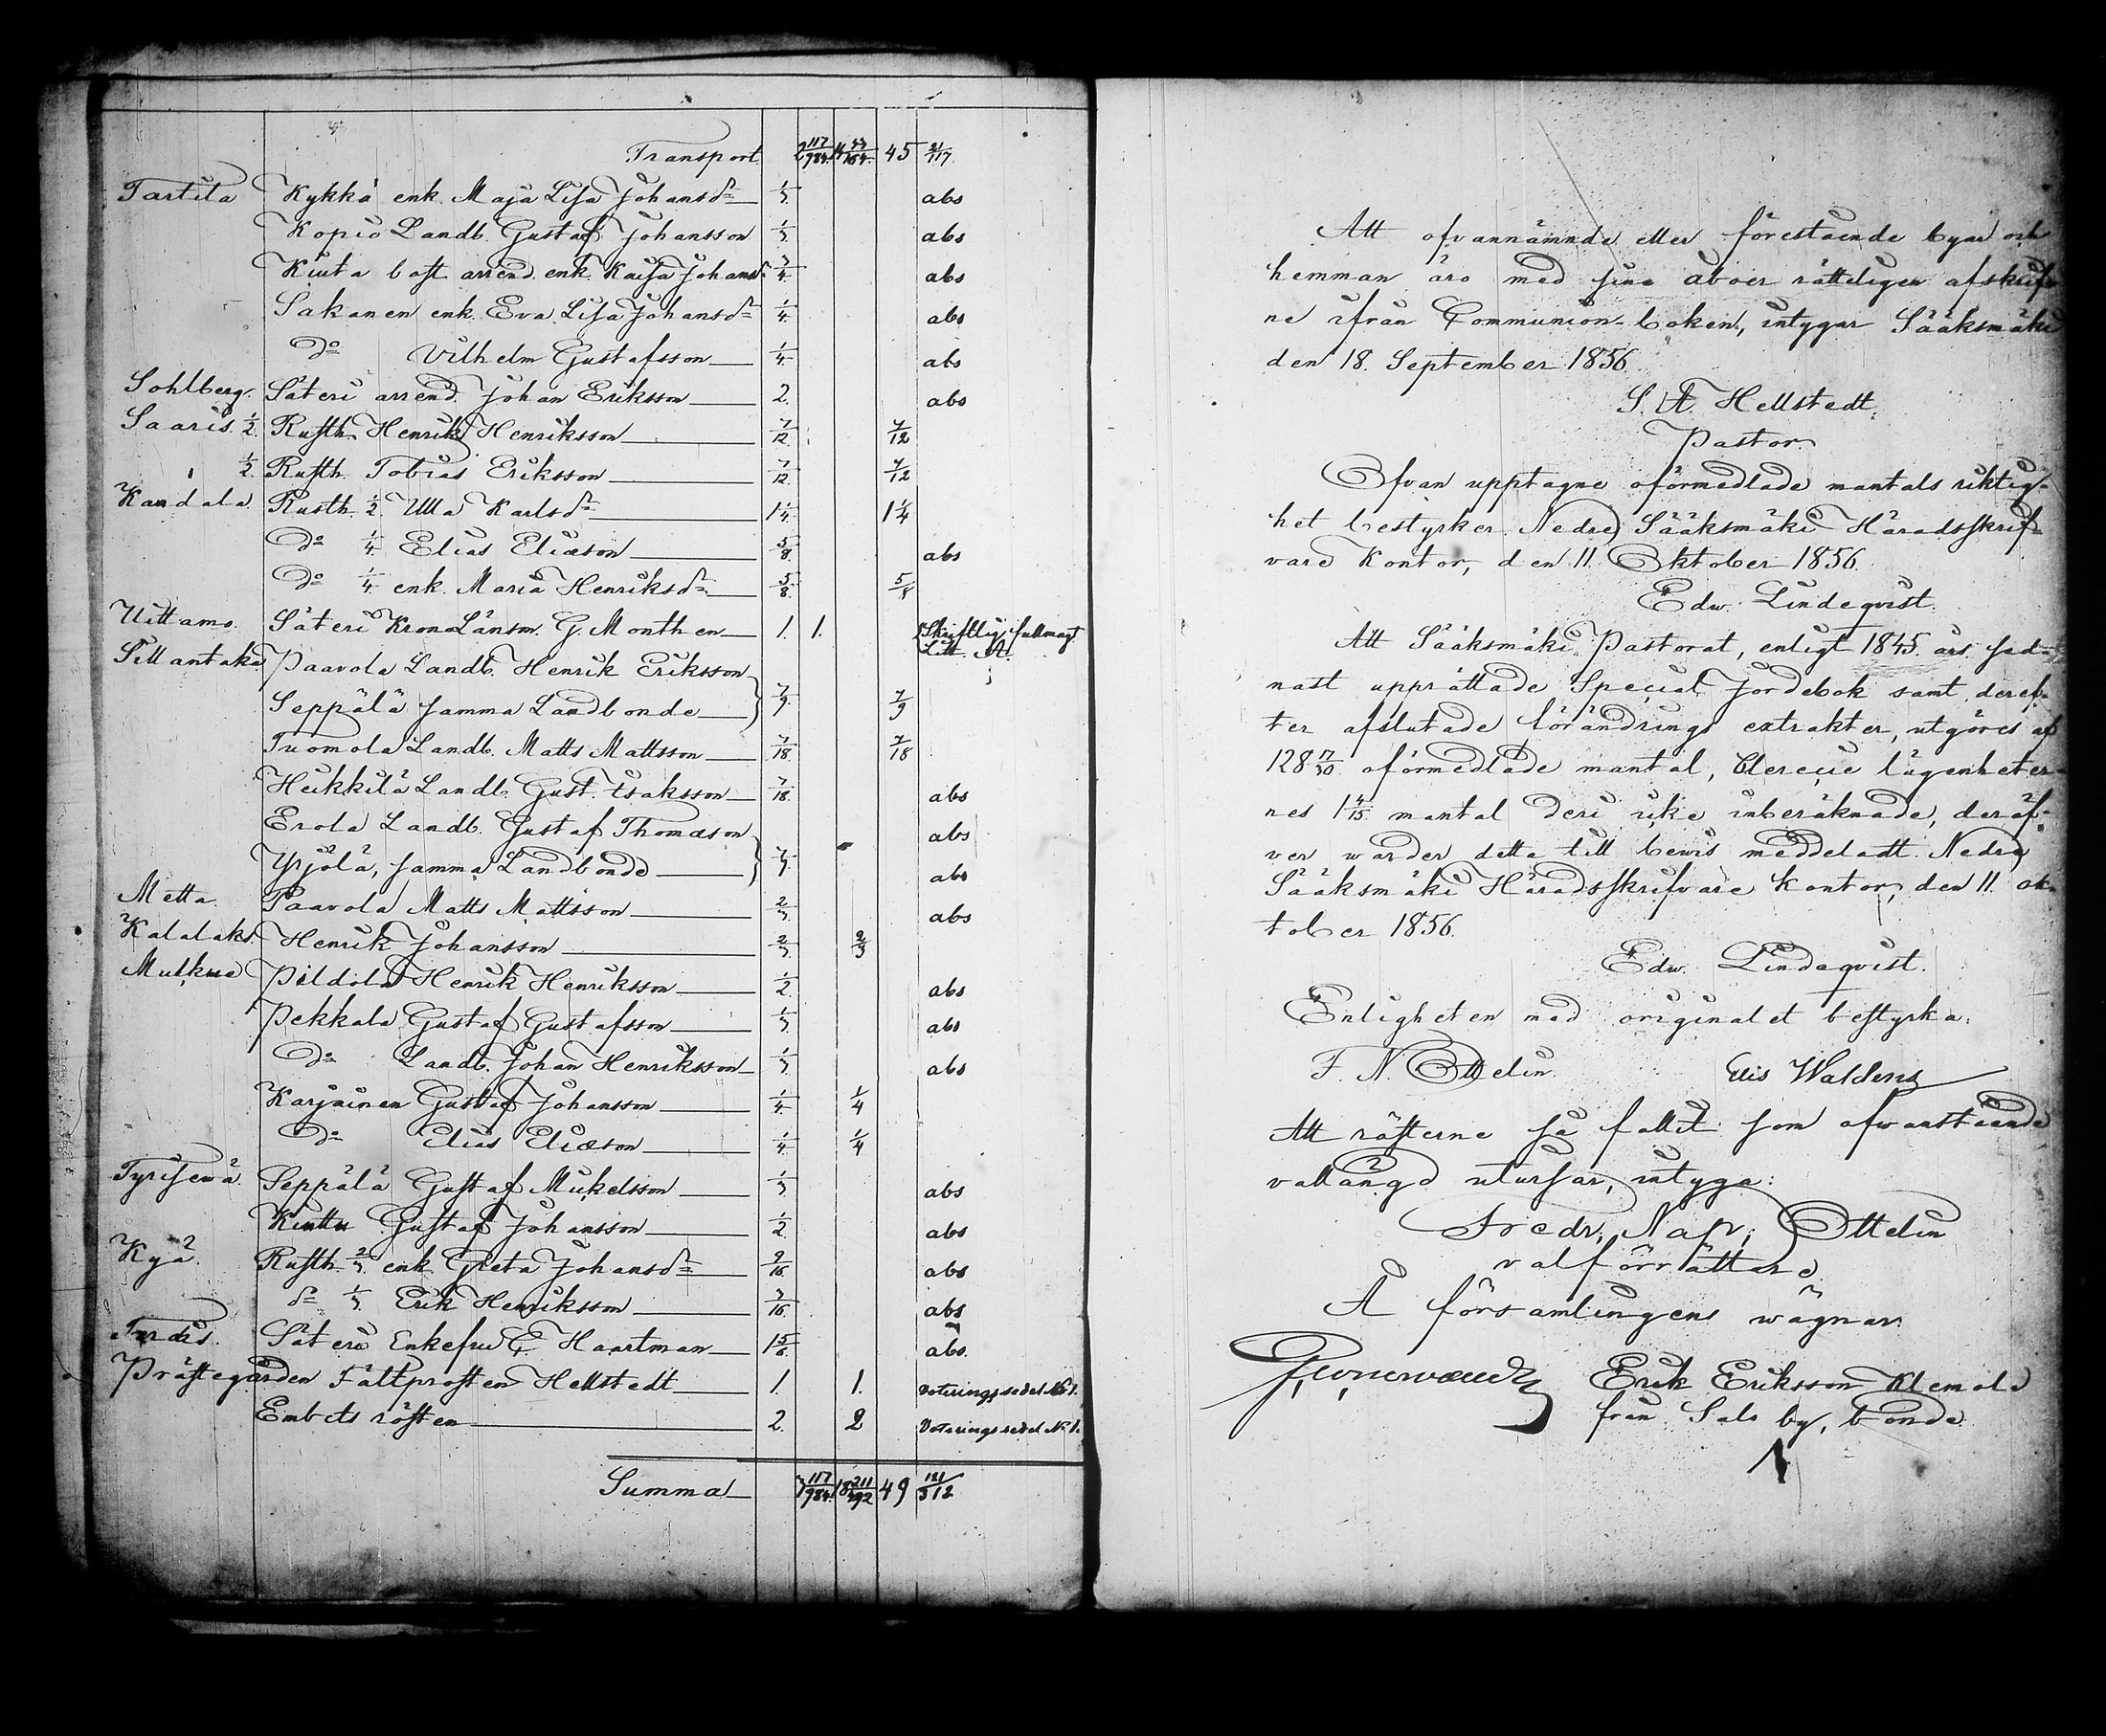 Transport 2 117/984 14 /164 45 21/117
Tartila Kykkä enk. Maja Lisa Johansdr 1/3 abs
Kopio Landb. Gustaf Johansson 1/3 abs
Kiuta bost. arrend. enk. Kaisa Johansdr 3/4 abs
Sakanen enk. Eva Lisa Johansdr 1/4 abs
Do Vilhelm Gustafsson 1/4 abs
Sohlberg. Säteri arrend. Johan Eriksson 2. abs
Saaris. 1/2 Rusth. Henrik Henriksson 7/12 7/12
1/2 Rusth. Tobias Eriksson 7/12 7/12
Kandala Rusth. 1/2 Ulla Karlsdr 1 1/4 1 1/4
Do 1/4 Elias Eliæson 5/8 abs
Do 1/4 enk. Maria Henriksdr 5/8 5/8
Uittamo. Säteri Krono Länsm. G. Monthen 1. 1. Skriftlig fullmagt
Litt. A.
Sillantaka Paavola Landb. Henrik Eriksson
Seppälä samma Landbonde 7/9 7/9
Tuomola Landb. Matts Mattsson 7/18 7/18
Heikkilä Landb. Gust. Isaksson 7/18 abs
Erola Landb. Gustaf Thomason abs
Yrjölä, samma Landbonde 7/9 abs
Metta. Paavola Matts Mattsson 2/3 abs
Kalalaks. Henrik Johansson 2/3 2/3
Mulkue Pildola Henrik Henriksson 1/2 abs
Pekkala Gustaf Gustafsson 1/3 abs
Do Landb. Johan Henriksson 1/3 abs
Karjninen Gustaf Johansson 1/4 1/4
Do Elias Eliæson 1/4 1/4
Tyrisevä. Seppälä Gustaf Mickelsson 1/3 abs
Kinttu Gustaf Johansson 1/2 abs
Kyä. Rusth. 2/3 enk. Greta Johansdr 9/16 abs
do 1/3 Erik Henriksson 3/16 abs
Säteri Enkefru E. Haartman 1 5/6 abs.
Prästegården Fältprosten Hellstedt 1. 1. Voteringssedel No 1.
Embetsrösten 2. 2 Voteringssedel No 1.
Summa 3 117/984 18 211/492 49 121/312
Att ofvannämnde eller förestående byar och
hemman äro med sina åboer rätteligen afskrif-
ne ifrån Communion-boken, intygar Sääksmäki
den 18. September 1856.
S. A. Hellstedt.
Pastor.
Ofvan upptagne oförmedlade mantals riktig-
het bestyrker. Nedre Sääksmäki Häradsskrif-
vare Kontor, den 11. Oktober 1856.
Edw. Lindeqvist.
Att Sääksmäki Pastorat, enligt 1845. års sed-
nast upprättade Special Jordebok samt deref-
ter afslutade förändrings extrakter, utgöres af
128 17/30 oförmedlade mantal, Clereçie lägenheter-
nes 1 4/15 mantal deri icke inberäknade, deröf-
ver warder detta till bewis meddeladt. Nedre
Sääksmäki Häradsskrifvare Kontor, den 11. Ok-
tober 1856.
Edw. Lindeqvist.
Enligheten med originalet bestyrka:
F. N. Ottelin Elis Waldens
Att rösterne så fallit som ofvanstående
vallängd utvisar, intyga:
Fredr. Nap. Ottelin
valförrättare
Å församlingens wägnar:
Erik Eriksson Klemola
från Sals by, bonde.